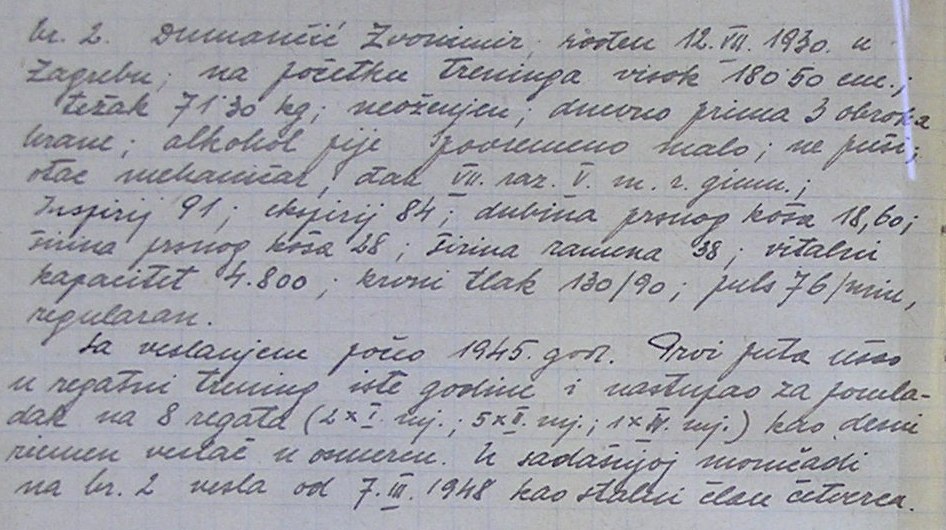 br. 2. Dumančić Zvonimir, rođen 12. VII. 1930. u
Zagrebu; na početku treninga visok 180˙50 cm.;
težak 71˙30 kg; neoženjen; dnevno prima 3 obroka
hrane; alkohol pije povremeno malo; ne puši;
otac mehaničar, đak VII. raz. V. m. r. gimn.;
Inspirij 91; ekspirij 84; dubina prsnog koša 18,60;
širina prsnog koša 28; širina ramena 38; vitalni
kapacitet 4.800; krvni tlak 130/90; puls 76/min,
regularan.
Sa veslanjem počeo 1945. god. Prvi puta ušao
u regatni trening iste godine i nastupao za pomla-
dak na 8 regata (2×I. mj.; 5×II. mj.; 1×III. mj.) kao desni
riemen veslač u osmercu. U sadašnjoj momčadi
na br. 2 vesla od 7. III. 1948 kao stalni član četverca.